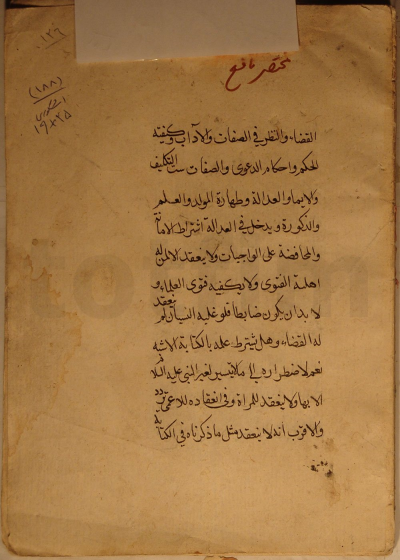 ١٢٦
(١٨٨)
١٩×٢٥
مختصر نافع
القضاء والنظر في الصفات والآداب وكيفية
الحكم واحكام الدعوى والصفات ست التكليف
والايمان والعدالة وطهارة المولد والعلم
والذكورة ويدخل في العدالة اشتراط الامانة
والمحافظة على الواجبات ولا ينعقد الا لمن له
اهلية الفتوى ولا يكفيه فتوى العلماء و
لا بد ان يكون ضابطا فلو غلبه النسيان لم ينعقد
له القضاء وهل يشترط علمه بالكتابة الاشبه
نعم لاضطراره الى ما لا يتيسر لغير النبي عليه السلام
الا بها ولا ينعقد للمراة وفي انعقاده للاعمى تردد
والاقرب انه لا ينعقد لمثل ما ذكرناه في الكتابة